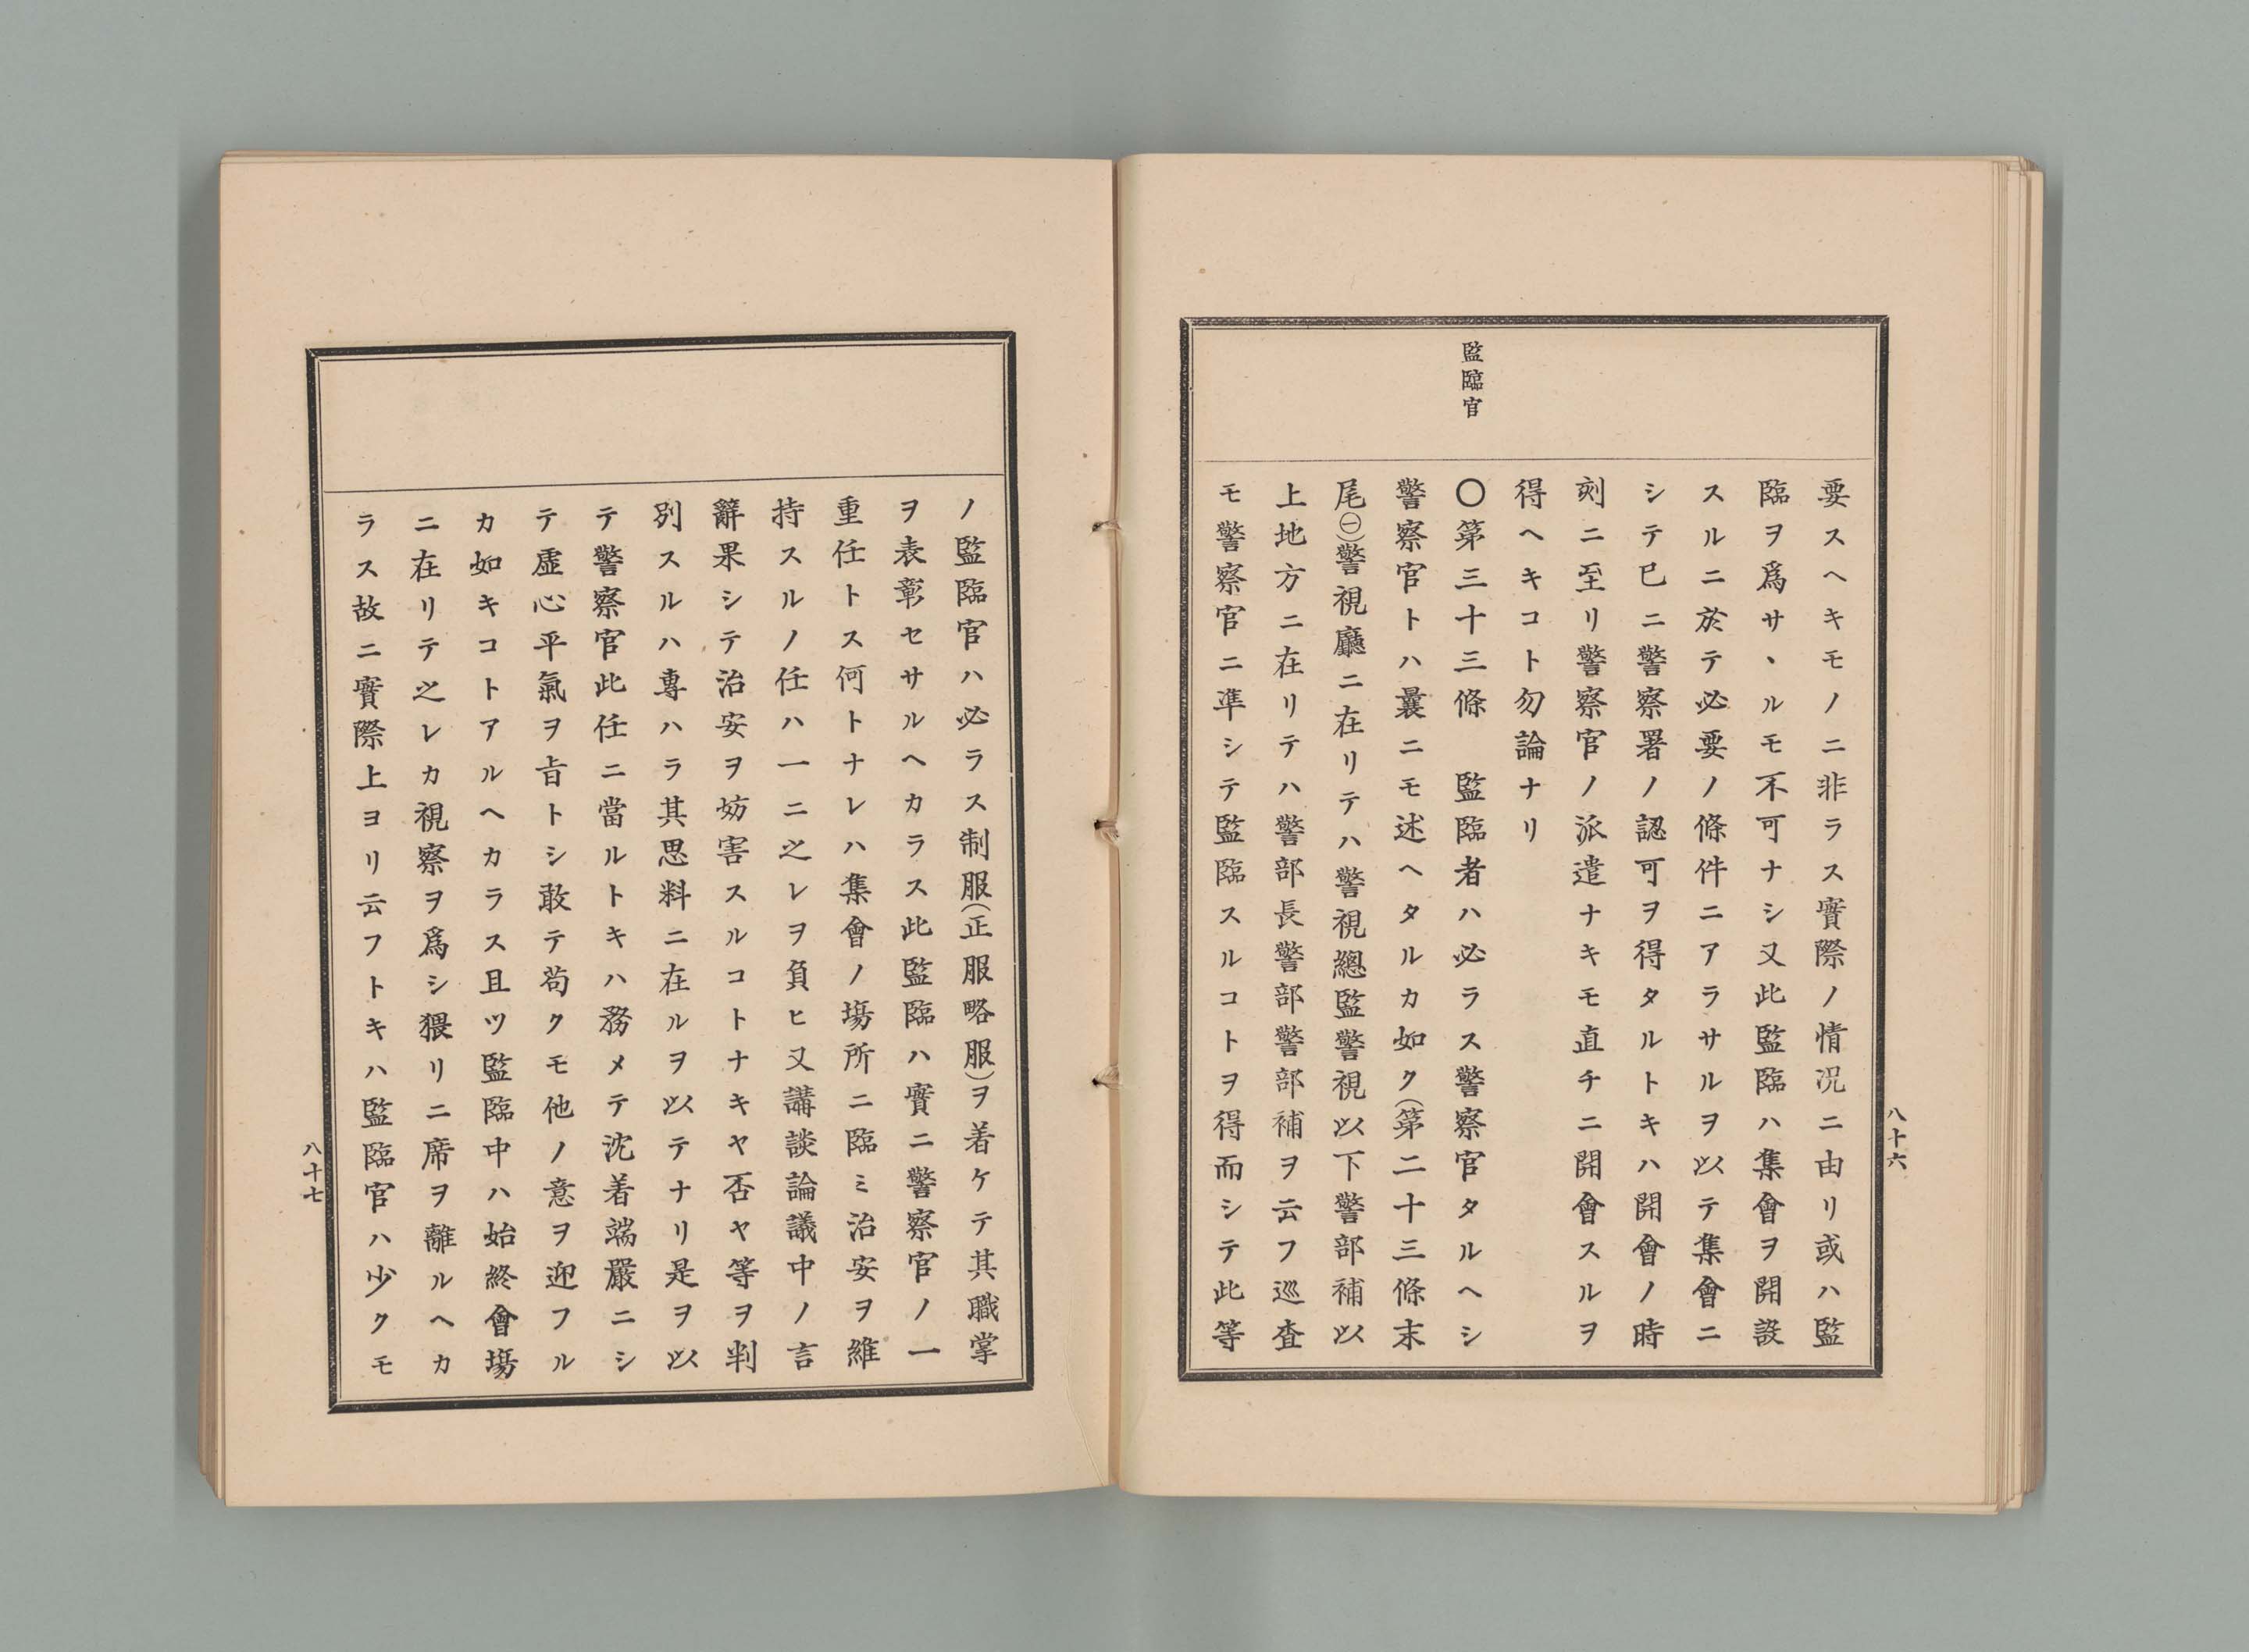 八十六
監臨官
要スヘキモノニ非ラス實際ノ情況ニ由リ或ハ監
臨ヲ爲サヽルモ不可ナシ又此監臨ハ集會ヲ開設
スルニ於テ必要ノ條件ニアラサルヲ以テ集會ニ
シテ已ニ警察署ノ認可ヲ得タルトキハ開會ノ時
刻ニ至リ警察官ノ派遣ナキモ直チニ開會スルヲ
得ヘキコト勿論ナリ
〇第三十三條　監臨者ハ必ラス警察官タルヘシ
警察官トハ曩ニモ述ヘタルカ如ク(第二十三條末
尾㊀)警視廳ニ在リテハ警視總監警視以下警部補以
上地方ニ在リテハ警部長警部警部補ヲ云フ巡査
モ警察官ニ準シテ監臨スルコトヲ得而シテ此等
ノ監臨官ハ必ラス制服(正服略服)ヲ着ケテ其職掌
ヲ表彰セサルヘカラス此監臨ハ實ニ警察官ノ一
重任トス何トナレハ集會ノ塲所ニ臨ミ治安ヲ維
持スルノ任ハ一ニ之レヲ負ヒ又講談論議中ノ言
辭果シテ治安ヲ妨害スルコトナキヤ否ヤ等ヲ判
別スルハ專ハラ其思料ニ在ルヲ以テナリ是ヲ以
テ警察官此任ニ當ルトキハ務メテ沈着端嚴ニシ
テ虛心平氣ヲ旨トシ敢テ苟クモ他ノ意ヲ迎フル
カ如キコトアルヘカラス且ツ監臨中ハ始終會塲
ニ在リテ之レカ視察ヲ爲シ猥リニ席ヲ離ルヘカ
ラス故ニ實際上ヨリ云フトキハ監臨官ハ少クモ
八十七